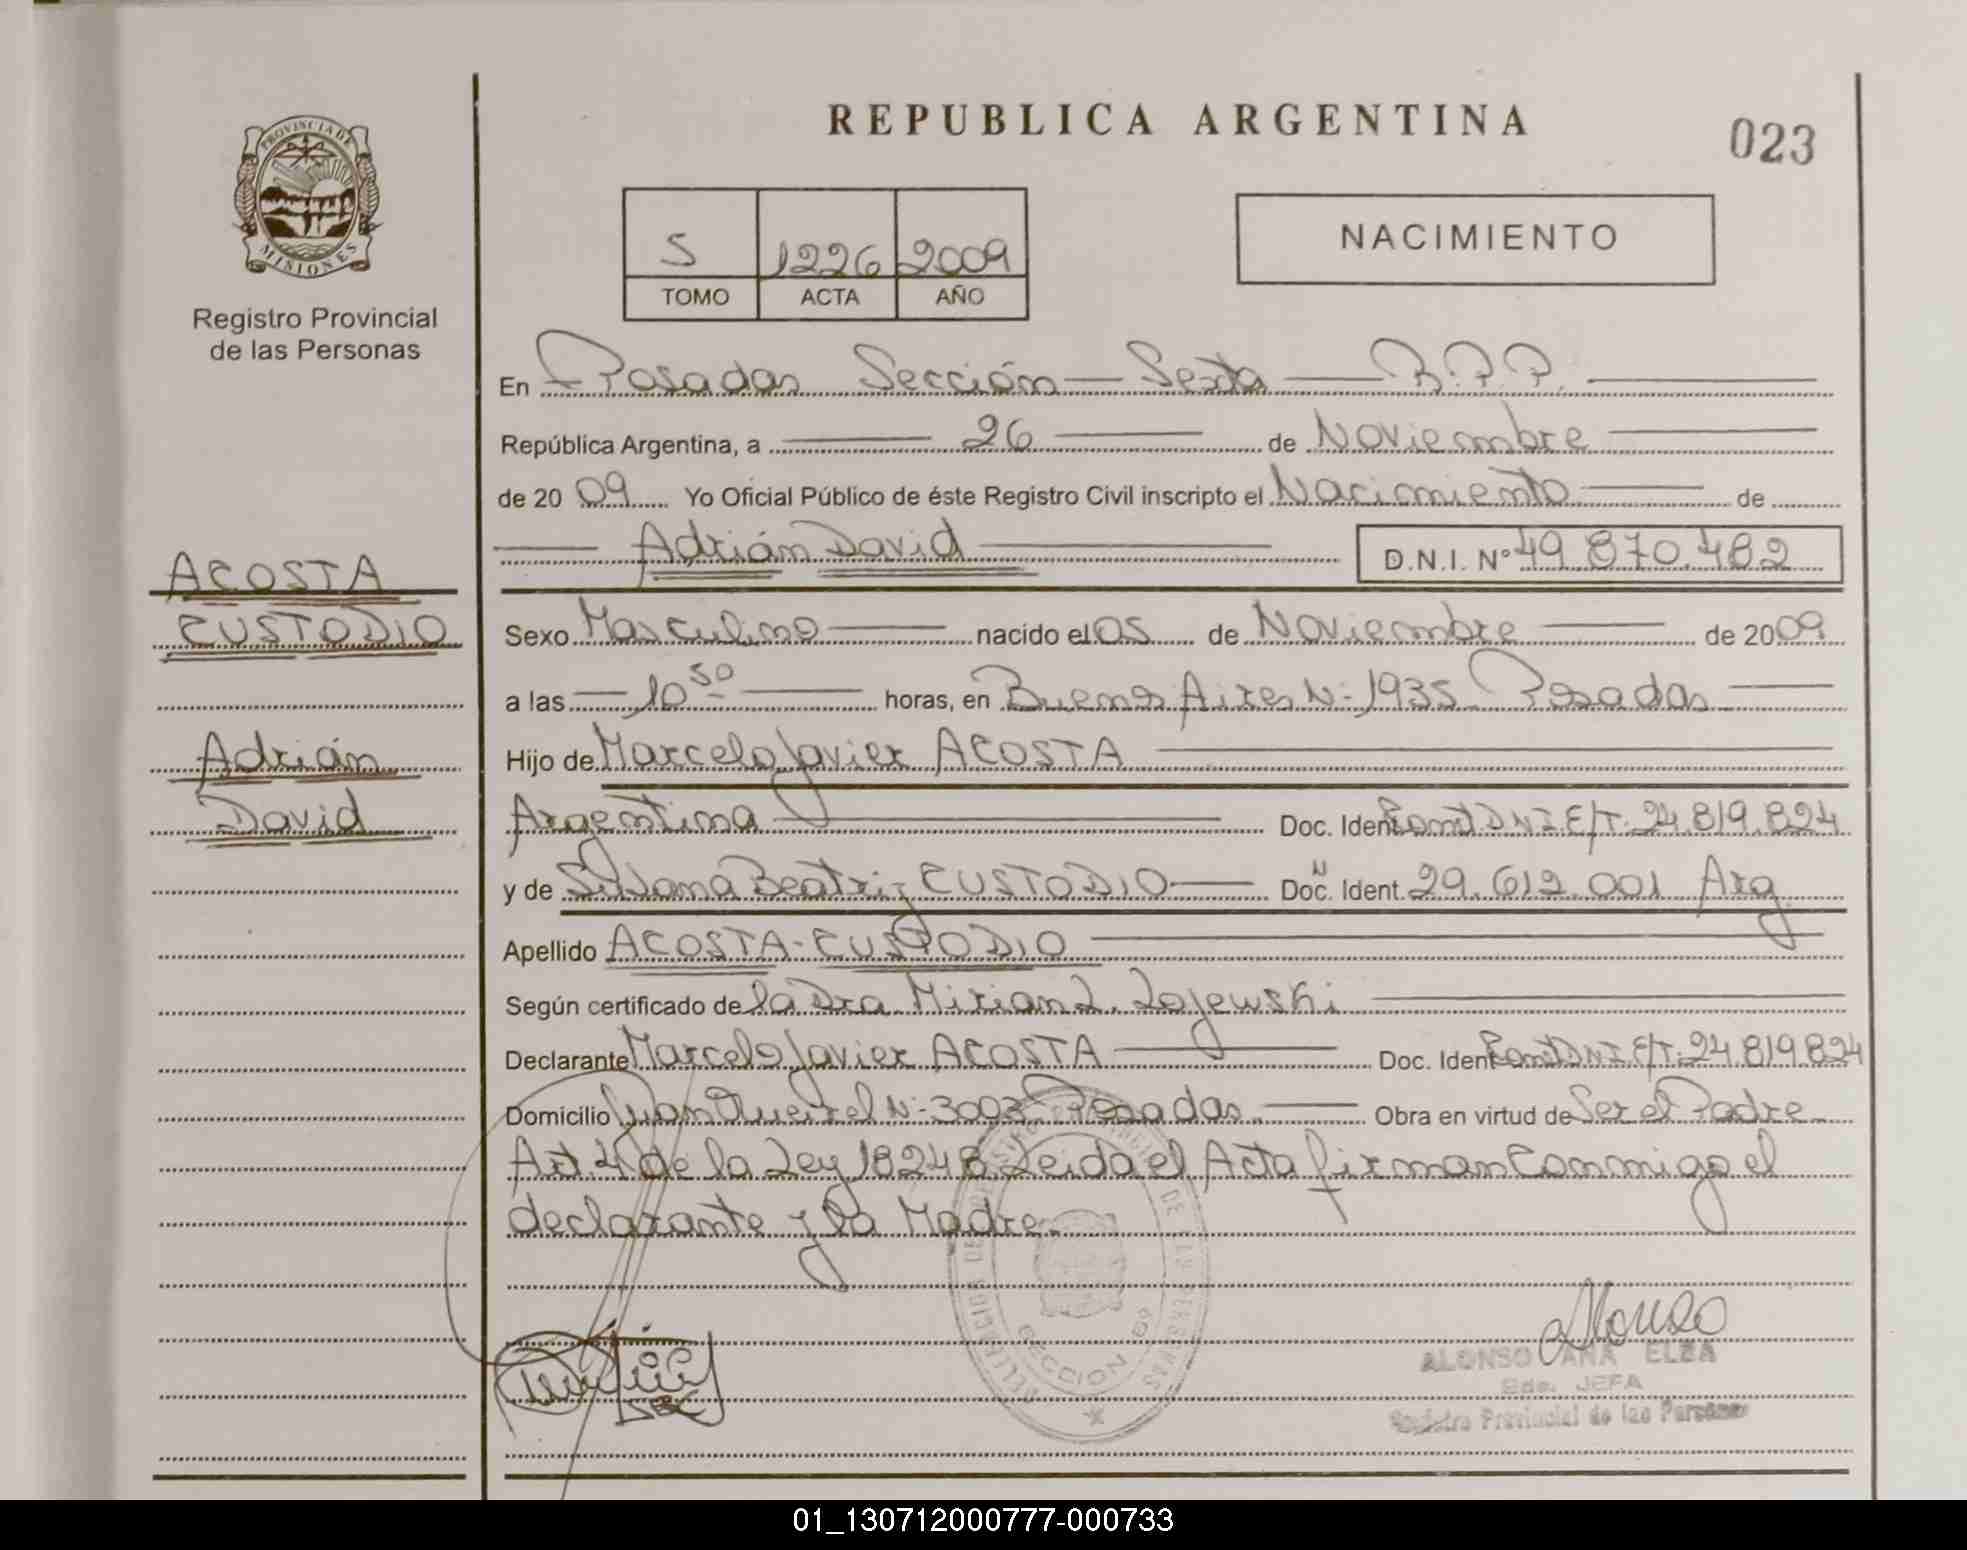 REPUBLICA ARGENTINA
023
PROVINCIA DE
MISIONES
Registro Provincial
de las Personas
5 1226 2009
TOMO ACTA AÑO
NACIMIENTO
En Posadas Sección Sexta R.P.P.
República Argentina, a 26 de Noviembre
de 2009 Yo Oficial Público de éste Registro Civil inscripto el Nacimiento de
Adrián David D.N.I. Nº 49.870.482
ACOSTA
CUSTODIO
Adrián
David
Sexo Masculino nacido el 05 de Noviembre de 2009
a las 10 50 horas, en Buenos Aires Nº 1935 Posadas
Hijo de Marcelo Javier ACOSTA
Argentina Doc. Ident. DNI E/T. 24.819.824
y de Silvana Beatriz CUSTODIO Doc. Ident. 29.612.001 Arg
Apellido ACOSTA-CUSTODIO
Según certificado de la Dra Mirian L. Zajewski
Declarante Marcelo Javier ACOSTA Doc. Ident. DNI.E/T. 24.819.824
Domicilio Juan Queirel Nº 3003 Posadas Obra en virtud de Ser el Padre
Art 4 de la Ley 18248 Leida el Acta firman Conmigo el
declarante y la Madre.
SECCION 6a
Alonso
ALONSO ANA ELBA
JEFA
Registro Provincial de las Personas
01_130712000777-000733